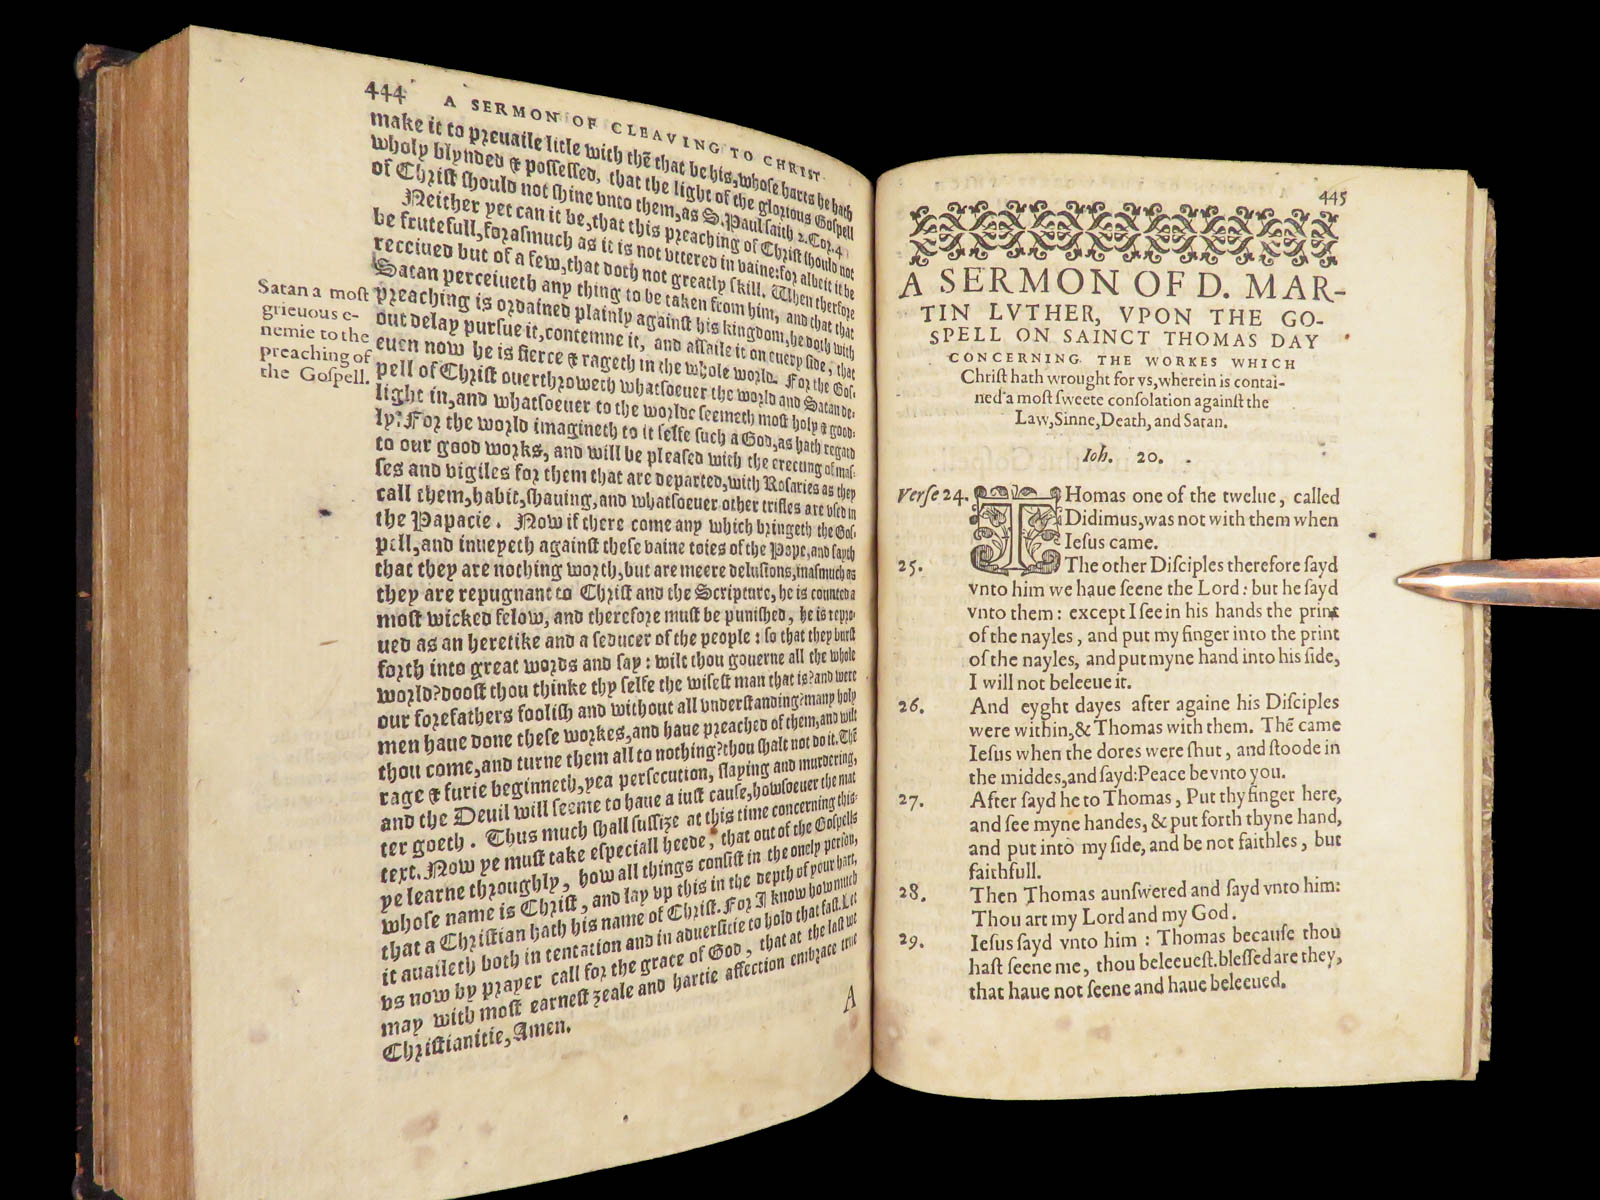 444 A SERMON OF CLEAVING TO CHRIST
make it to preuaile litle with thẽ that be his, whose harts he hath
wholy blynded & possessed, that the light of the glorious Gospell
of Christ should not shine vnto them, as S. Paul saith 2. Cor. 4.
Neither yet can it be, that this preaching of Christ should not
be frutefull, forasmuch as it is not vttered in vaine: for albeit it be
receiued but of a few, that doth not greatly skill. When therfore
Satan perceiueth any thing to be taken from him, and that that
preaching is ordained plainly against his kingdom, he doth with
out delay pursue it, contemne it, and assaile it on euery side, that
euen now he is fierce & rageth in the whole world. For the Gos-
pell of Christ ouerthroweth whatsoeuer the world and Satan de-
light in, and whatsoeuer to the worlde seemeth most holy & good-
ly: For the world imagineth to it selfe such a God, as hath regard
to our good works, and will be pleased with the erecting of mas-
ses and vigiles for them that are departed, with Rosaries as they
call them, habit, shauing, and whatsoeuer other trifles are vsed in
the Papacie. Now if there come any which bringeth the Gos-
pell, and inueyeth against these vaine toies of the Pope, and sayth
that they are nothing worth, but are meere delusions, inasmuch as
they are repugnant to Christ and the Scripture, he is counted a
most wicked felow, and therefore must be punished, he is repro-
ued as an heretike and a seducer of the people: so that they burst
forth into great words and say: wilt thou gouerne all the whole
world? doost thou thinke thy selfe the wisest man that is? and were
our forefathers foolish and without all vnderstanding? many holy
men haue done these workes, and haue preached of them, and wilt
thou come, and turne them all to nothing? thou shalt not do it. Thẽ
rage & furie beginneth, yea persecution, slaying and murdering,
and the Deuill will seeme to haue a iust cause, howsoeuer the mat
ter goeth. Thus much shall suffize at this time concerning this
text. Now ye must take especiall heede, that out of the Gospells
ye learne throughly, how all things consist in the onely person,
whose name is Christ, and lay vp this in the depth of your hart,
that a Christian hath his name of Christ. For I know how much
it auaileth both in tentation and in aduersitie to hold that fast. Let
vs now by prayer call for the grace of God, that at the last we
may with most earnest zeale and hartie affection embrace true
Christianitie, Amen.
A
Satan a most
grieuous e-
nemie to the
preaching of
the Gospell.
445
A SERMON OF D. MAR-
TIN LVTHER, VPON THE GO-
SPELL ON SAINCT THOMAS DAY
CONCERNING THE WORKES WHICH
Christ hath wrought for vs, wherein is contai-
ned a most sweete consolation against the
Law, Sinne, Death, and Satan.
Ioh. 20.
Verse 24. THomas one of the twelue, called
Didimus, was not with them when
Iesus came.
25. The other Disciples therefore sayd
vnto him we haue seene the Lord: but he sayd
vnto them: except I see in his hands the print
of the nayles, and put my finger into the print
of the nayles, and put myne hand into his side,
I will not beleeue it.
26. And eyght dayes after againe his Disciples
were within, & Thomas with them. Thẽ came
Iesus when the dores were shut, and stoode in
the middes, and sayd: Peace be vnto you.
27. After sayd he to Thomas, Put thy finger here,
and see myne handes, & put forth thyne hand,
and put into my side, and be not faithles, but
faithfull.
28. Then Thomas aunswered and sayd vnto him:
Thou art my Lord and my God.
29. Iesus sayd vnto him: Thomas because thou
hast seene me, thou beleeuest. blessed are they,
that haue not seene and haue beleeued.